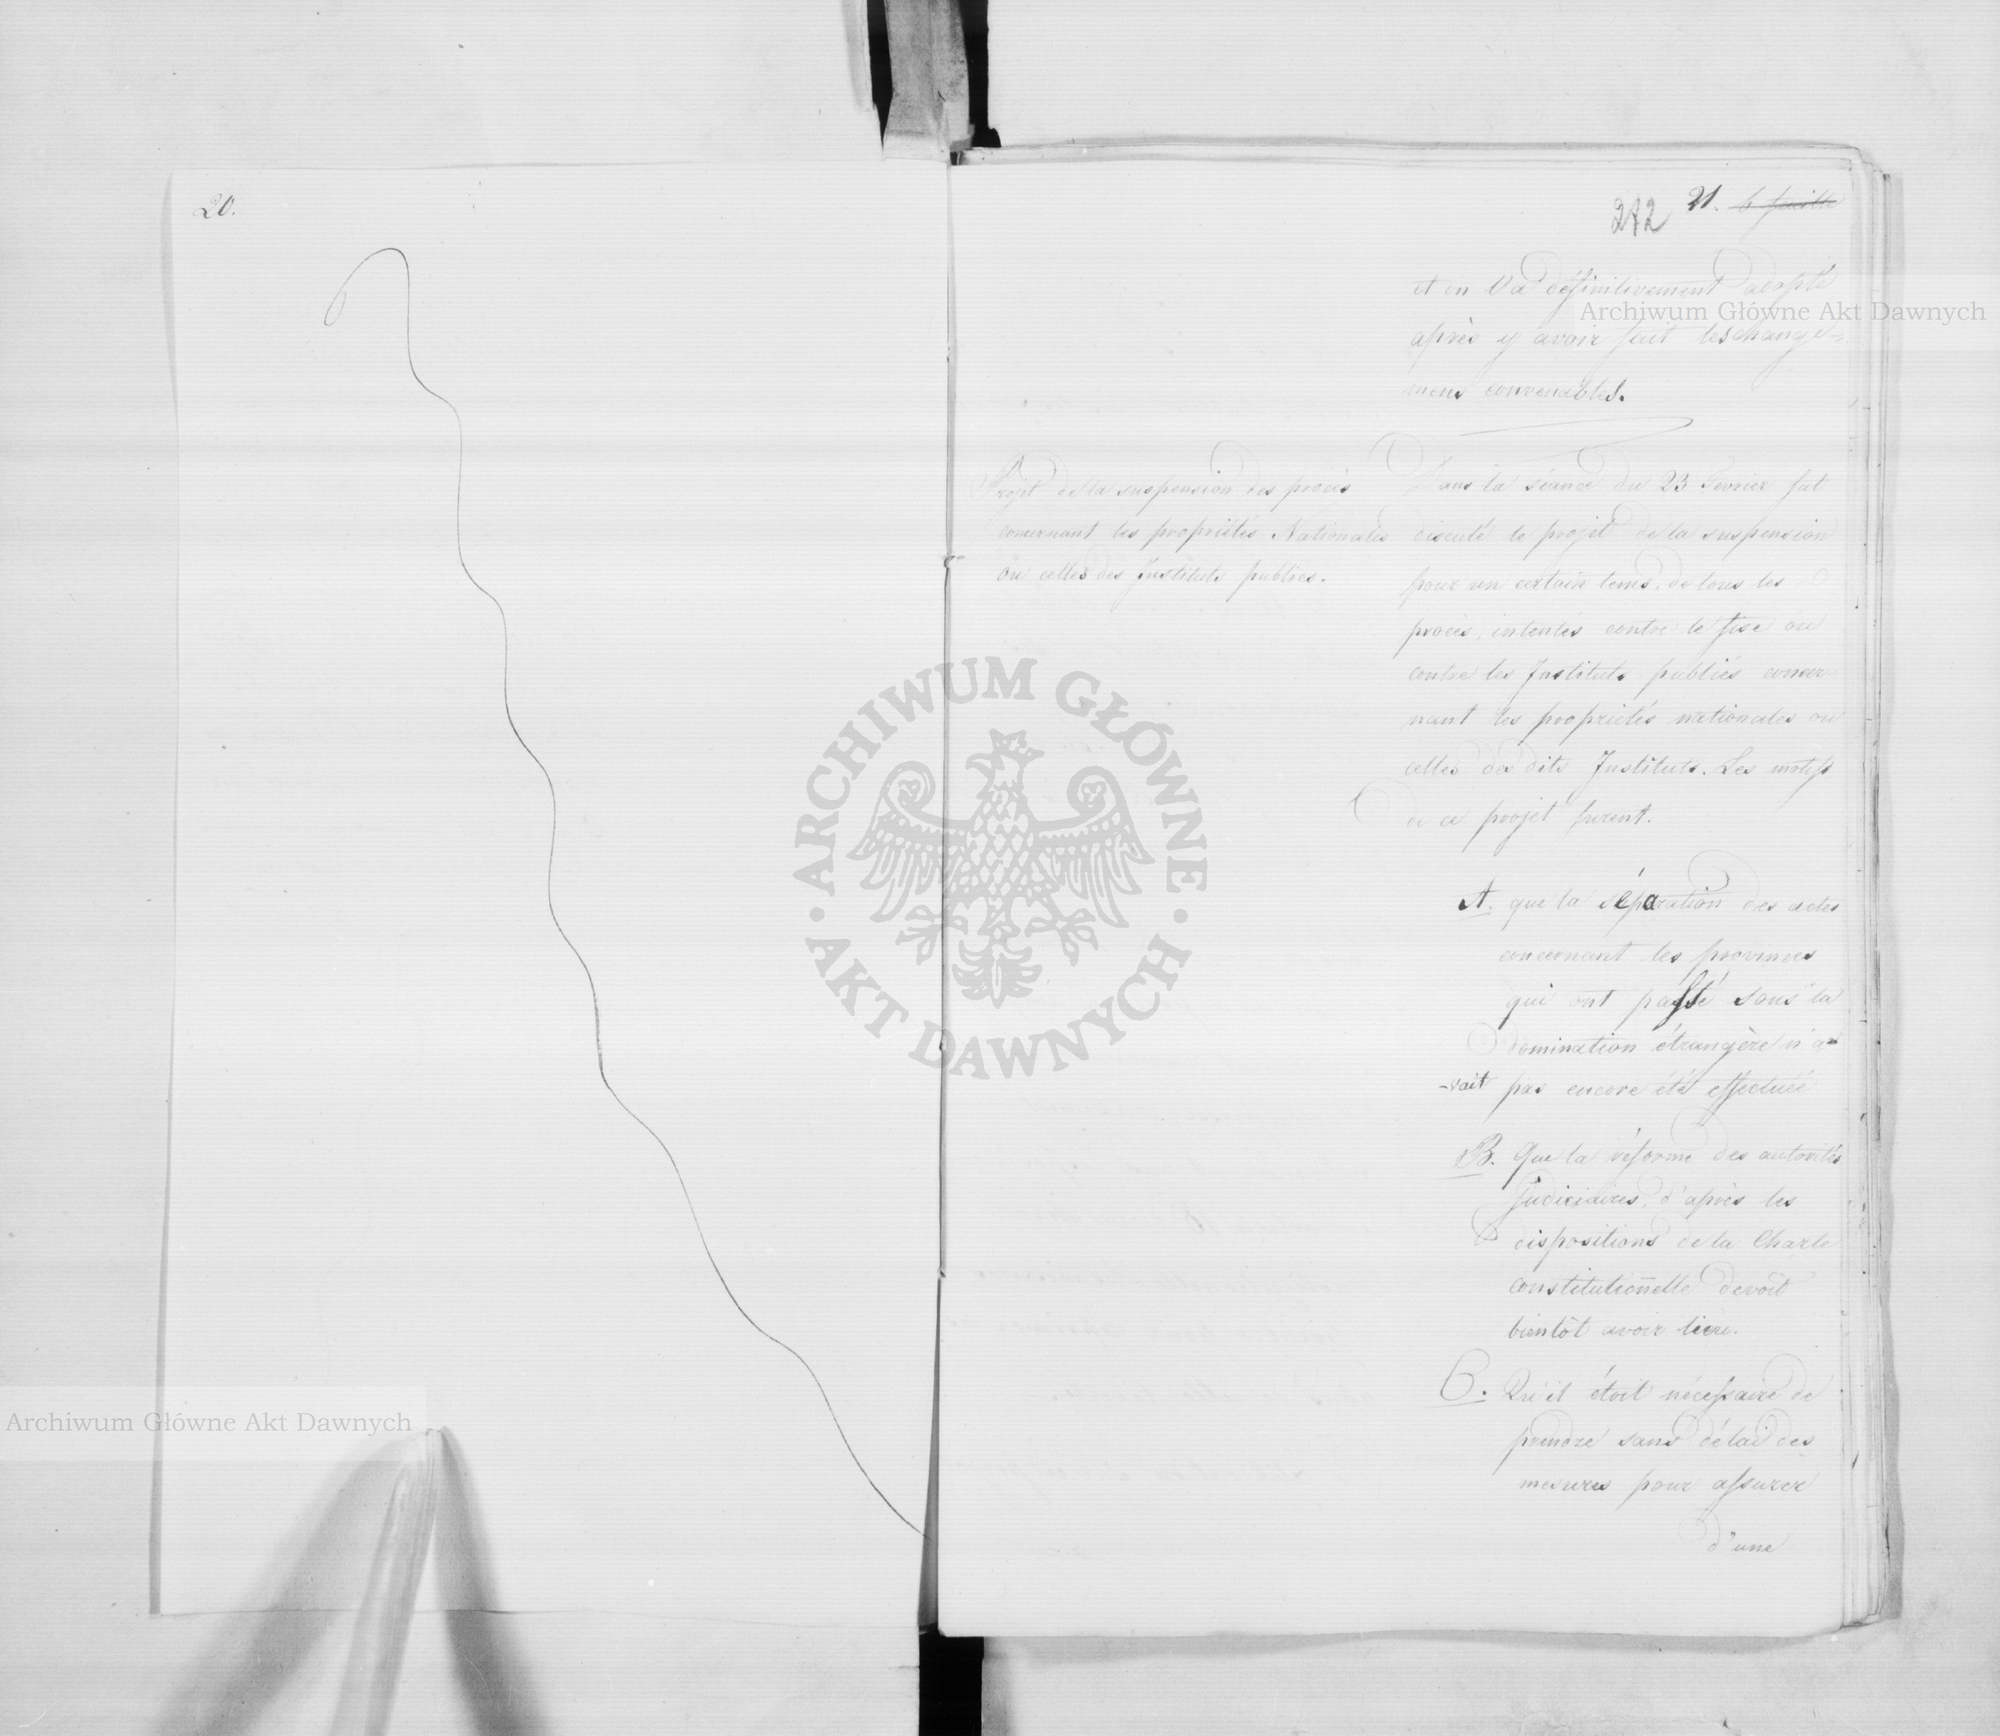 20.
272 21. 6 feuille
et on l'a définitivement adopté
après y avoir fait les change-
mens convenables.
Projet de la suspension des procès
concernant les propriétés Nationales
ou celles des Instituts publics.
Dans la séance du 23 Fevrier fut
discuté le projet de la suspension
pour un certain tems, de tous les
procès, intentés contre le fisc ou
contre les Instituts publics concer-
nant les propriétés nationales ou
celles des dits Instituts. Les motifs
de ce projet furent.
A. que la séparation des actes
concernant les provinces
qui ont passé sous la
domination étrangère n'a-
-vait pas encore été effectuée
B. Que la réforme des autorités
judiciaires, d'après les
dispositions de la Charte
constitutionnelle devoit
bientôt avoir lieu.
C. Qu'il étoit nécessaire de
prendre sans délai des
mesures pour assurer
d'une
Archiwum Główne Akt Dawnych
ARCHIWUM GŁÓWNE
AKT DAWNYCH
Archiwum Główne Akt Dawnych